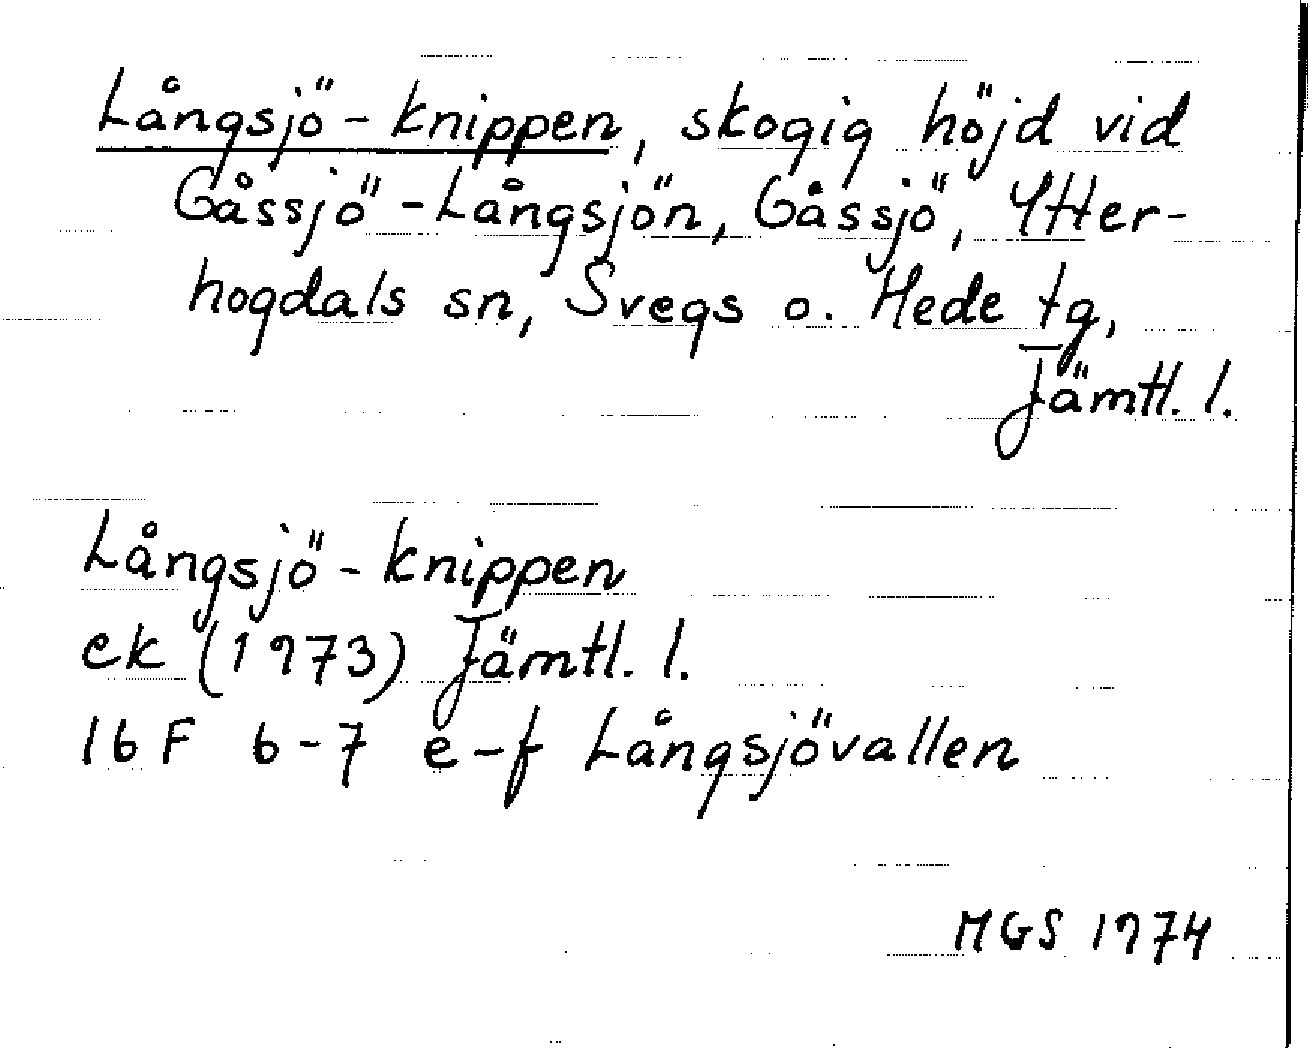 Långsjö-knippen, skogig höjd vid
Gåssjö-Långsjön, Gåssjö, Ytter-
hogdals sn, Svegs o. Hede tg,
Jämtl. l.
Långsjö-knippen
ek (1973) Jämtl. l.
16 F 6-7 e-f Långsjövallen
MGS 1974